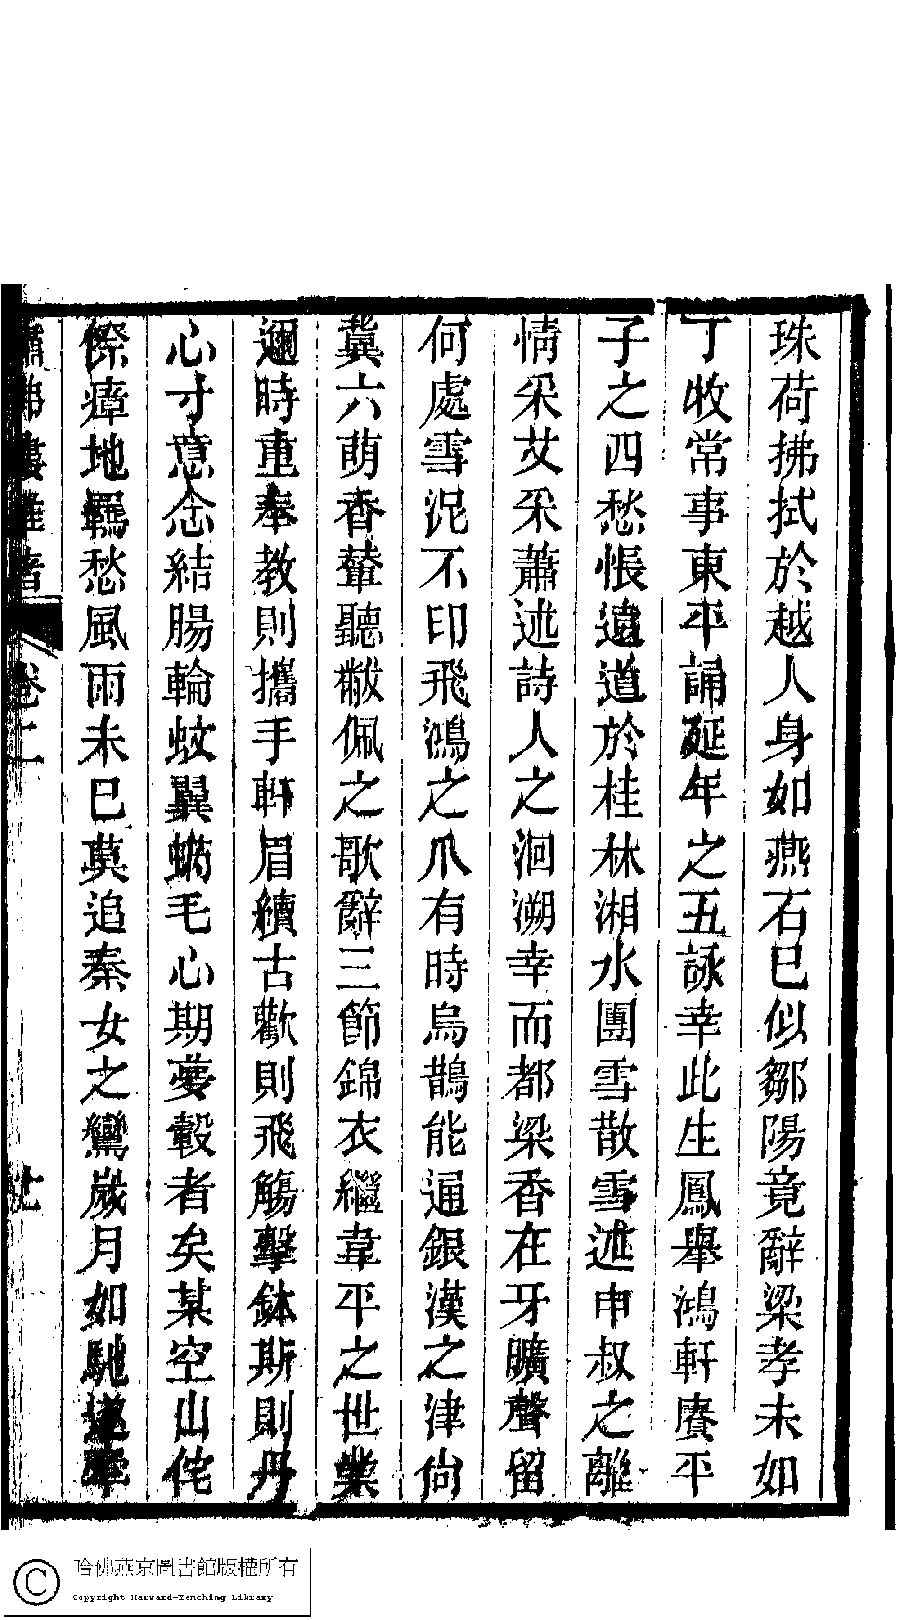 珠荷拂拭於越人身如燕石已似鄒陽竟辭梁孝未如
丁收常事東平誦延年之五詠幸此生鳳舉鴻軒賡平
子之四愁悵遠道於桂林湘水團雪散雪述申叔之離
情采艾采蕭述詩人之洄溯幸而都梁香在牙曠聲留
何處雪泥不印飛鴻之爪有時烏鵲能通銀漢之津尙
冀六萌香輦聽黻佩之歌辭三節錦衣繼韋平之世業
邇時重奉教則攜手軒眉續古歡則飛觴擊鉢斯則丹
心寸意念結腸輪蚊翼蝸毛心期夢轂者矣某空山侘
傺瘴地羈愁風雨未已莫追秦女之鸞歲月如馳
卷二
哈佛燕京圖書館版權所有
Copyright Harvard-Yenching Library